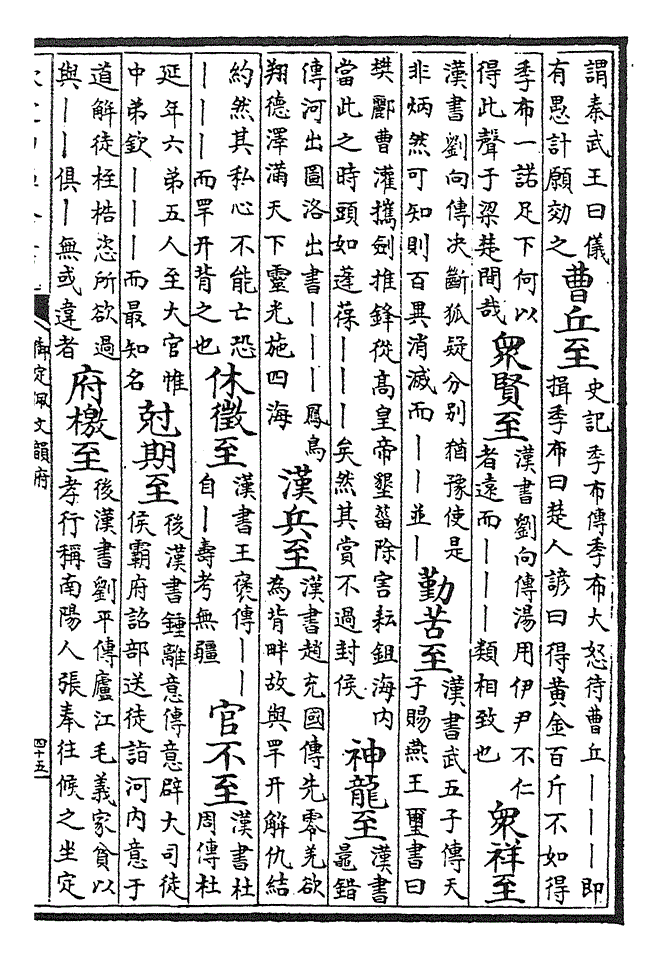 謂秦武王曰儀
有愚計願効之
曹丘至
史記季布傳季布大怒待曹丘———即
揖季布曰楚人諺曰得黄金百斤不如得
季布一諾足下何以
得此聲于梁楚間哉
衆賢至
漢書劉向傳湯用伊尹不仁
者遠而———類相致也
衆祥至
漢書劉向傳决斷狐疑分别猶豫使是
非炳然可知則百異消滅而——並—
勤苦至
漢書武五子傳天
子賜燕王璽書曰
樊酈曹灌攜劍推鋒從高皇帝墾菑除害耘鉏海内
當此之時頭如蓬葆———矣然其賞不過封侯
神龍至
漢書
鼂錯
傳河出圖洛出書———鳳鳥
翔德澤滿天下靈光施四海
漢兵至
漢書趙充國傳先零羌欲
為背畔故與罕幵解仇結
約然其私心不能亡恐
———而罕幵背之也
休徵至
漢書王褒傳——
自—壽考無疆
官不至
漢書杜
周傳杜
延年六弟五人至大官惟
中弟欽———而最知名
尅期至
後漢書鍾離意傳意辟大司徒
侯霸府詔部送徒詣河内意于
道解徒桎梏恣所欲過
與——俱—無或違者
府檄至
後漢書劉平傳廬江毛義家貧以
孝行稱南陽人張奉往候之坐定
御定佩文韻府
四十五